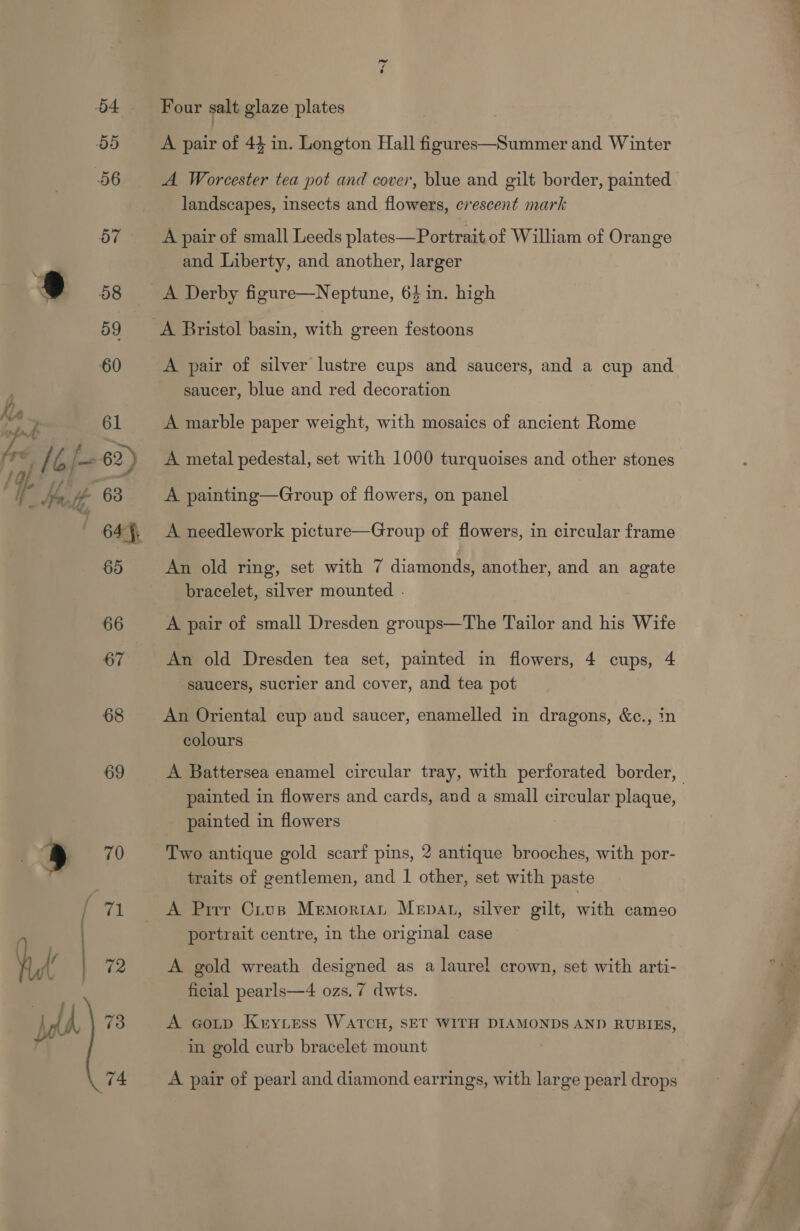 7
54 Four salt glaze plates
55 A pair of 4½ in. Longton Hall figures—Summer and Winter
56 A Worcester tea pot and cover, blue and gilt border, painted
landscapes, insects and flowers, crescent mark
57 A pair of small Leeds plates—Portrait of William of Orange
and Liberty, and another, larger
58 A Derby figure—Neptune, 6½ in. high
59 A Bristol basin, with green festoons
60 A pair of silver lustre cups and saucers, and a cup and
saucer, blue and red decoration
61 A marble paper weight, with mosaics of ancient Rome
62 A metal pedestal, set with 1000 turquoises and other stones
63 A painting—Group of flowers, on panel
64 A needlework picture—Group of flowers, in circular frame
65 An old ring, set with 7 diamonds, another, and an agate
bracelet, silver mounted
66 A pair of small Dresden groups—The Tailor and his Wife
67 An old Dresden tea set, painted in flowers, 4 cups, 4
saucers, sucrier and cover, and tea pot
68 An Oriental cup and saucer, enamelled in dragons, &c., in
colours
69 A Battersea enamel circular tray, with perforated border,
painted in flowers and cards, and a small circular plaque,
painted in flowers
70 Two antique gold scarf pins, 2 antique brooches, with por-
traits of gentlemen, and 1 other, set with paste
71 A Pitt Club Memorial Medal, silver gilt, with cameo
portrait centre, in the original case
72 A gold wreath designed as a laurel crown, set with arti-
ficial pearls—4 ozs. 7 dwts.
73 A gold Keyless Watch, SET WITH DIAMONDS AND RUBIES,
in gold curb bracelet mount
74 A pair of pearl and diamond earrings, with large pearl drops